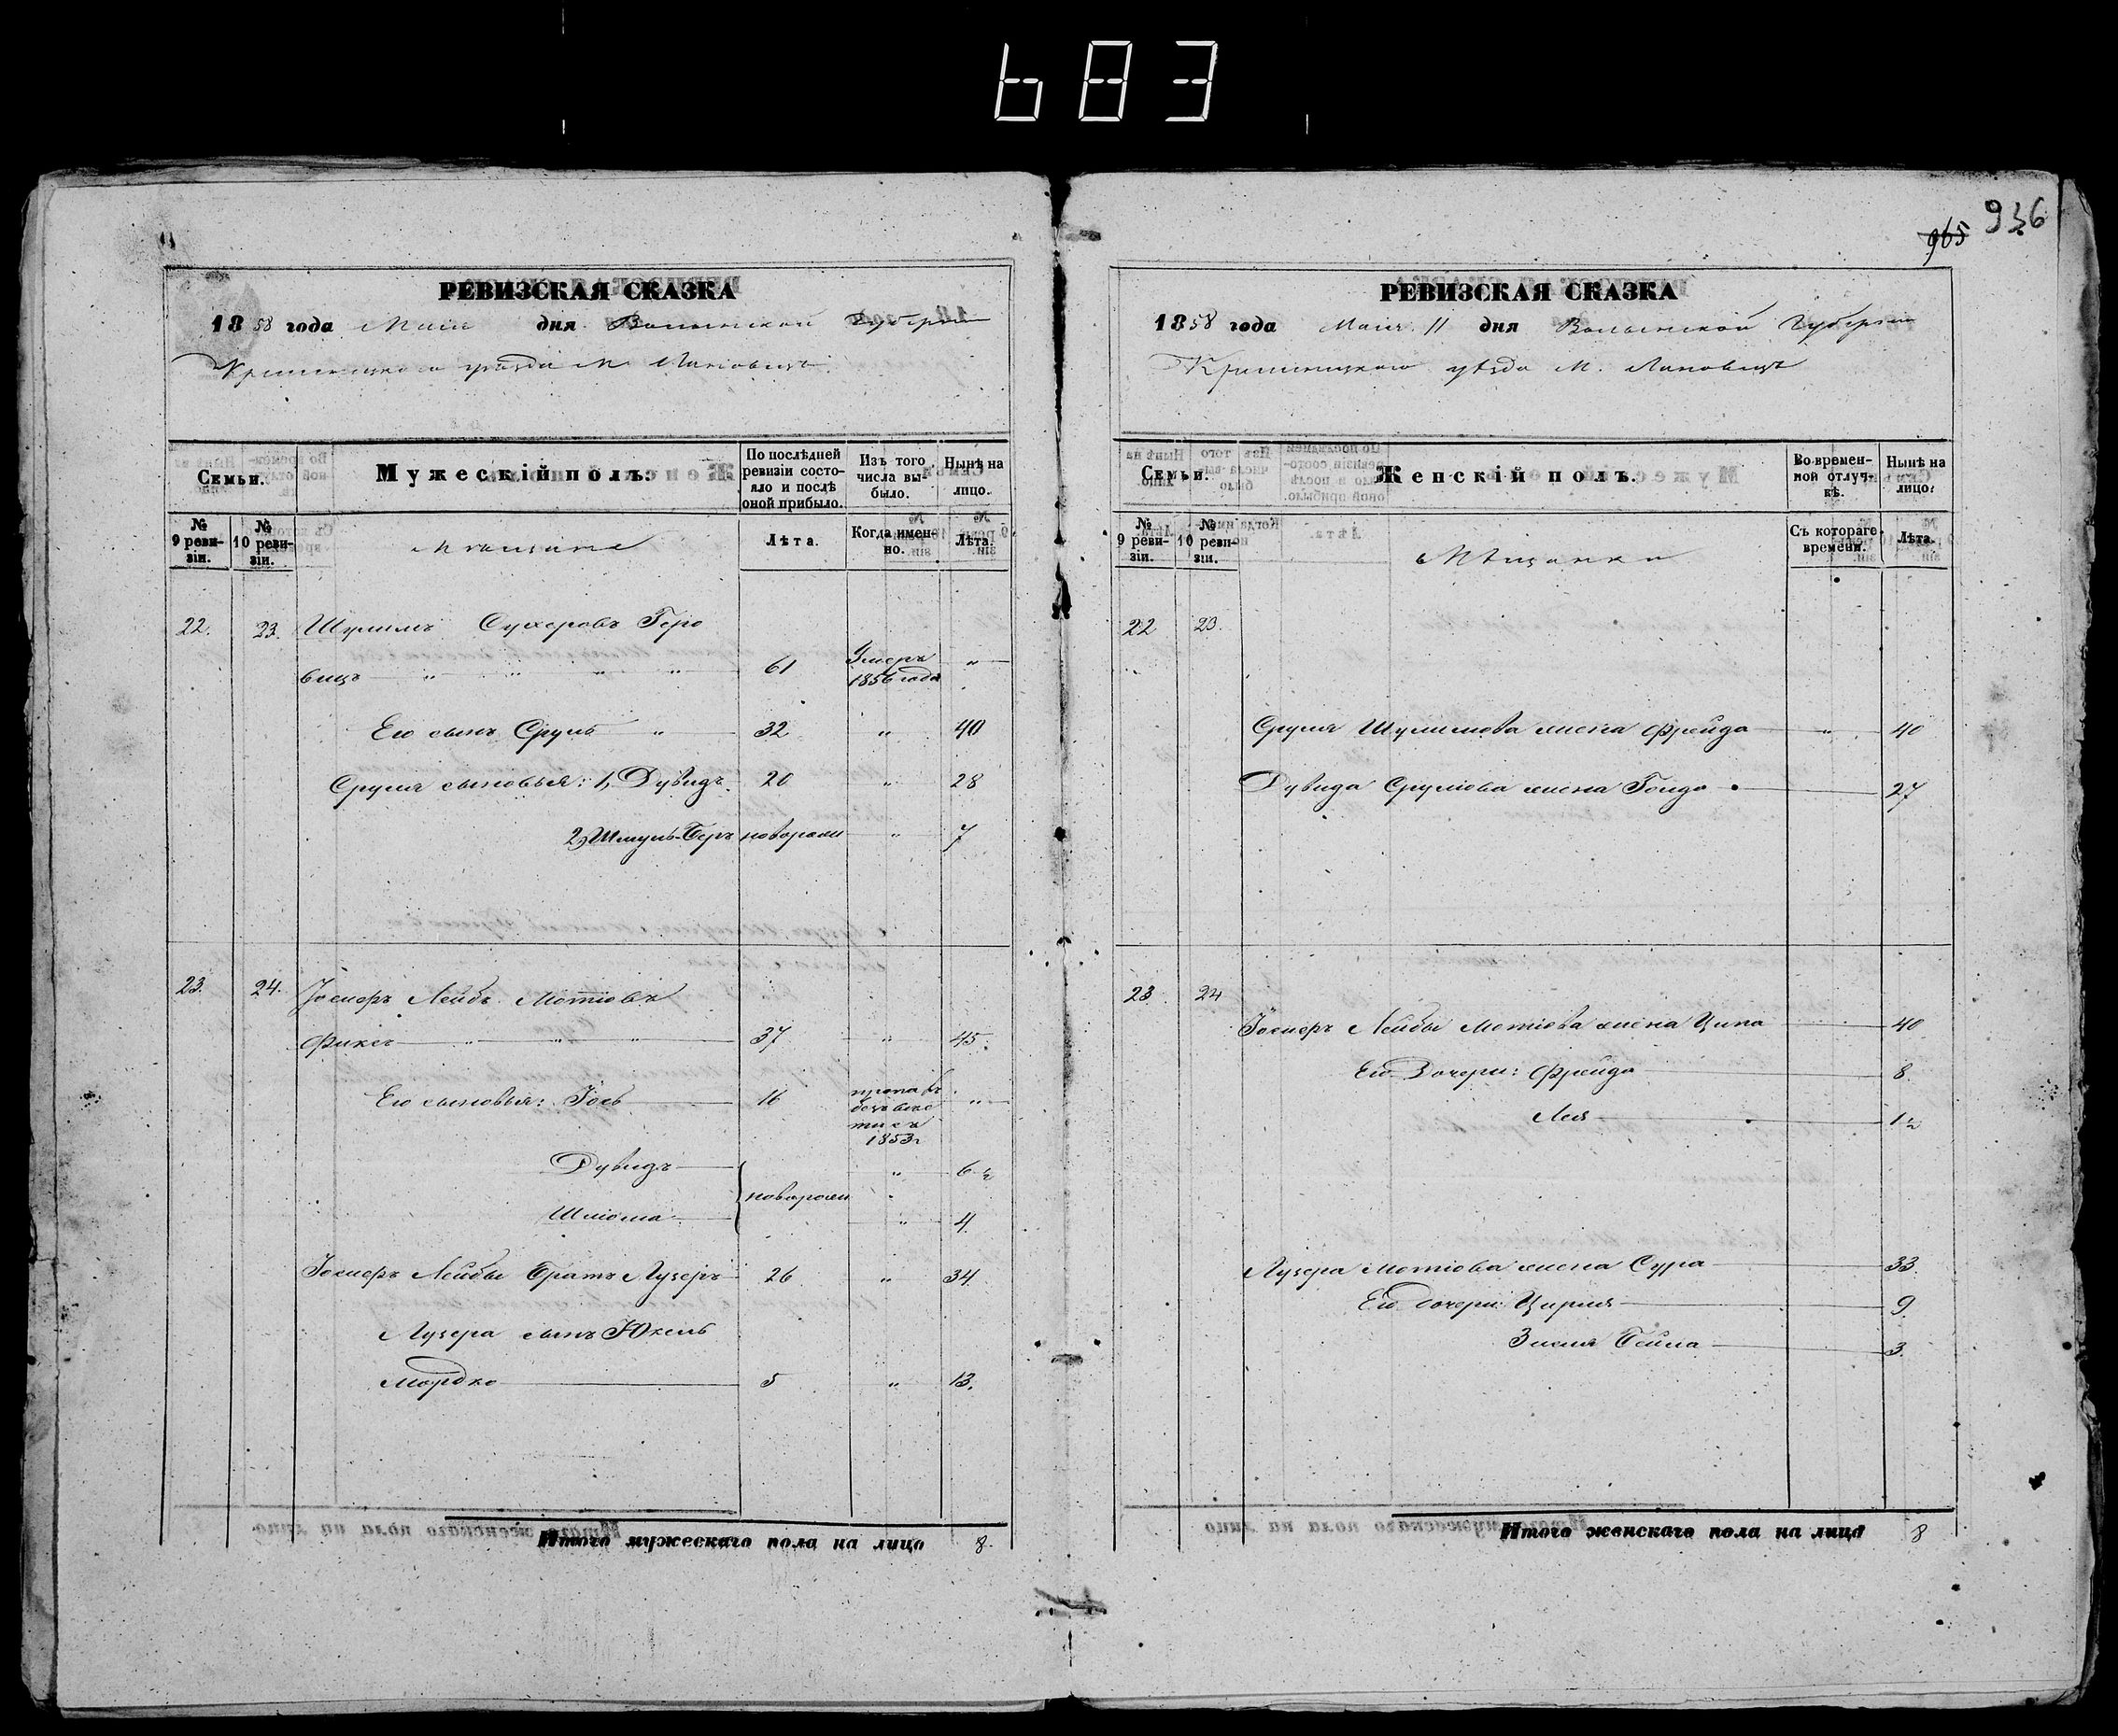 683
936
965
РЕВИЗСКАЯ СКАЗКА
1858 года Маія дня Волынской Губерніи
Кременецкаго уѣзда М. Лановецъ
Семьи.
Мужескій полъ.
По послѣдней ревизіи состояло и послѣ оной прибыло.
Изъ того числа выбыло.
Нынѣ на лицо.
№ 9 ревизіи.
№ 10 ревизіи.
Мѣщане
Лѣта.
Когда именно.
Лѣта.
22. 23. Шулимъ Сухеровъ Геро
вицъ " " " " 61 Умеръ 1856 года "
Его сынъ Сруль " 32 " 40
Сруля сыновья: 1, Дувидъ 20 " 28
2, Шмуль-Беръ новорожн " 7
23. 24. Іосифъ Лейбъ Мотіовъ
Фиксъ " " " 37 " 45.
Его сыновья: Іось 16 пропавъ безъ вѣстисъ 1853г "
Дувидъ " 6 ½
новорожн "
Шліома " 4.
Іосифъ Лейбы Братъ Лузеръ 26 " 34
Лузера сынъ Юкель
Мордко 5 " 13.
Итого мужескаго пола на лицо 8.
РЕВИЗСКАЯ СКАЗКА
1858 года Маія 11 дня Волынской Губерніи
Кременецкаго уѣзда М. Лановецъ
Семьи.
Женскій полъ.
Во временной отлучкѣ.
Нынѣ на лицо.
№ 9 ревизіи.
№ 10 ревизіи.
Мѣщанки
Съ котораго времени.
Лѣта.
22 23.
Сруля Шулимова жена Фрейда " 40
Дувида Сруліова жена Гольда 27
23. 24
Іосифъ Лейбы Мотіова жена Ципа 40
Его Дочери: Фрейда 8.
Лея 1 ½
Лузера Мотіова жена Сура 33.
Его дочери: Цирля 9.
Бейла 3.
Итого женскаго пола на лицо 8